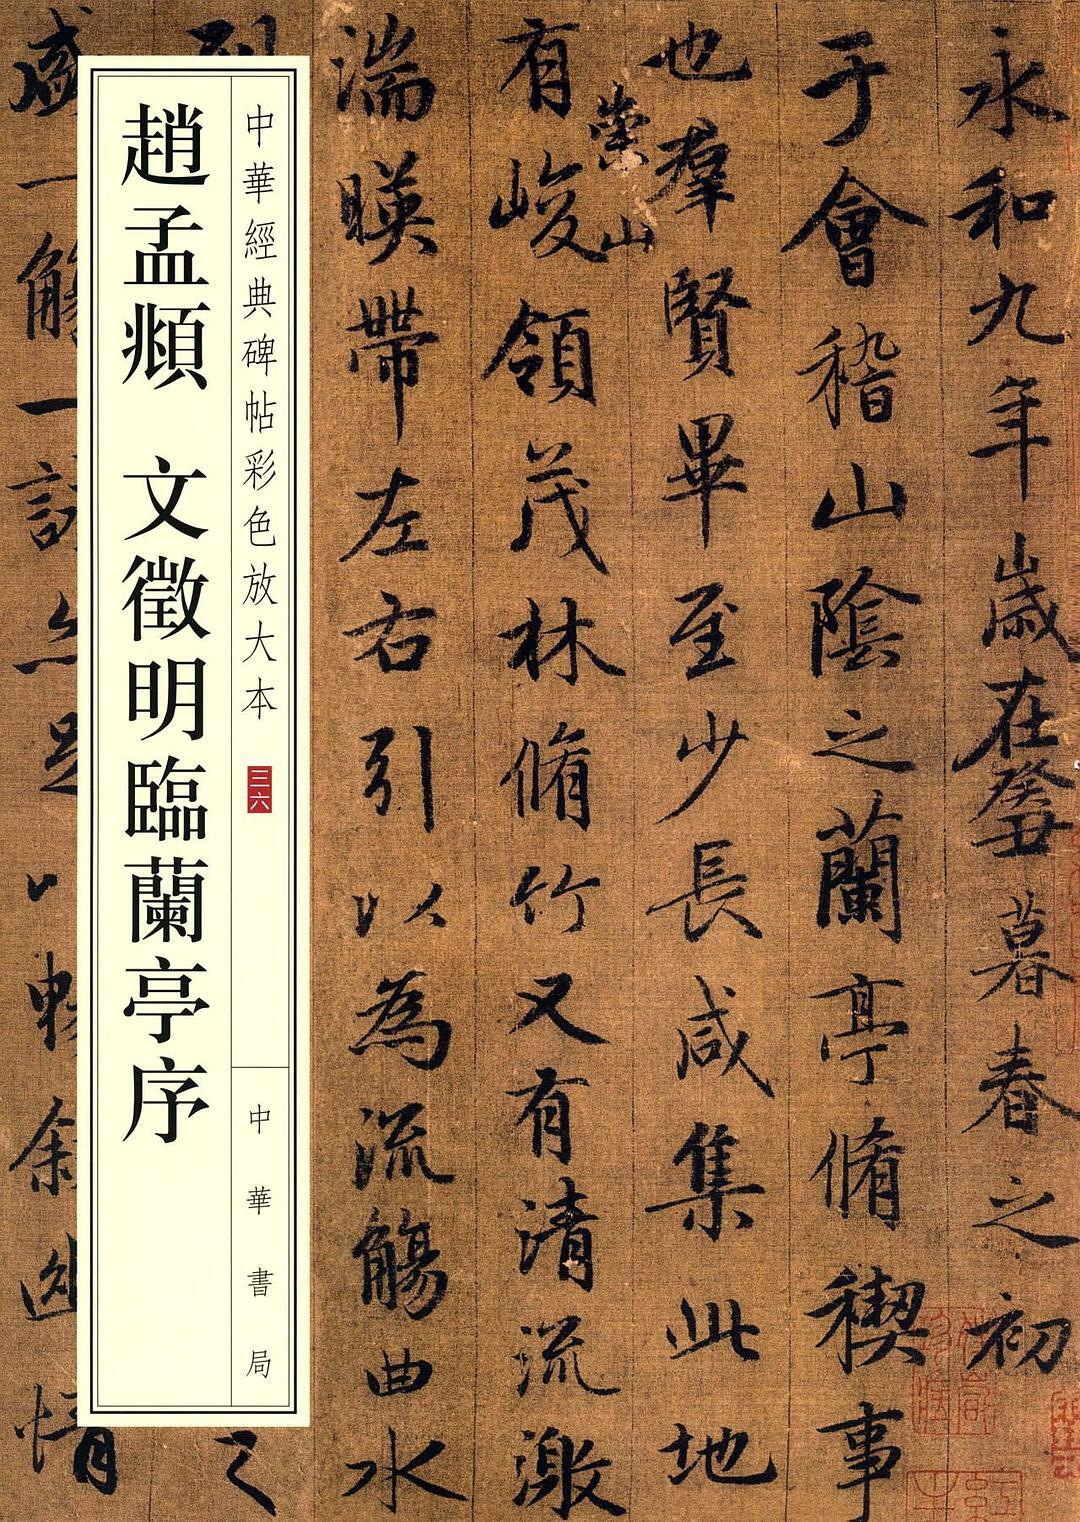 永和九年歲在癸丑暮春之初
于會稽山陰之蘭亭脩稧事
也羣賢畢至少長咸集此地
崇山
有峻領茂林脩竹又有清流激
湍暎帶左右引以為流觴曲水
中華經典碑帖彩色放大本 三六
中華書局
趙孟頫 文徵明臨蘭亭序
列 之
盛一觴一詠亦足以暢敘幽情